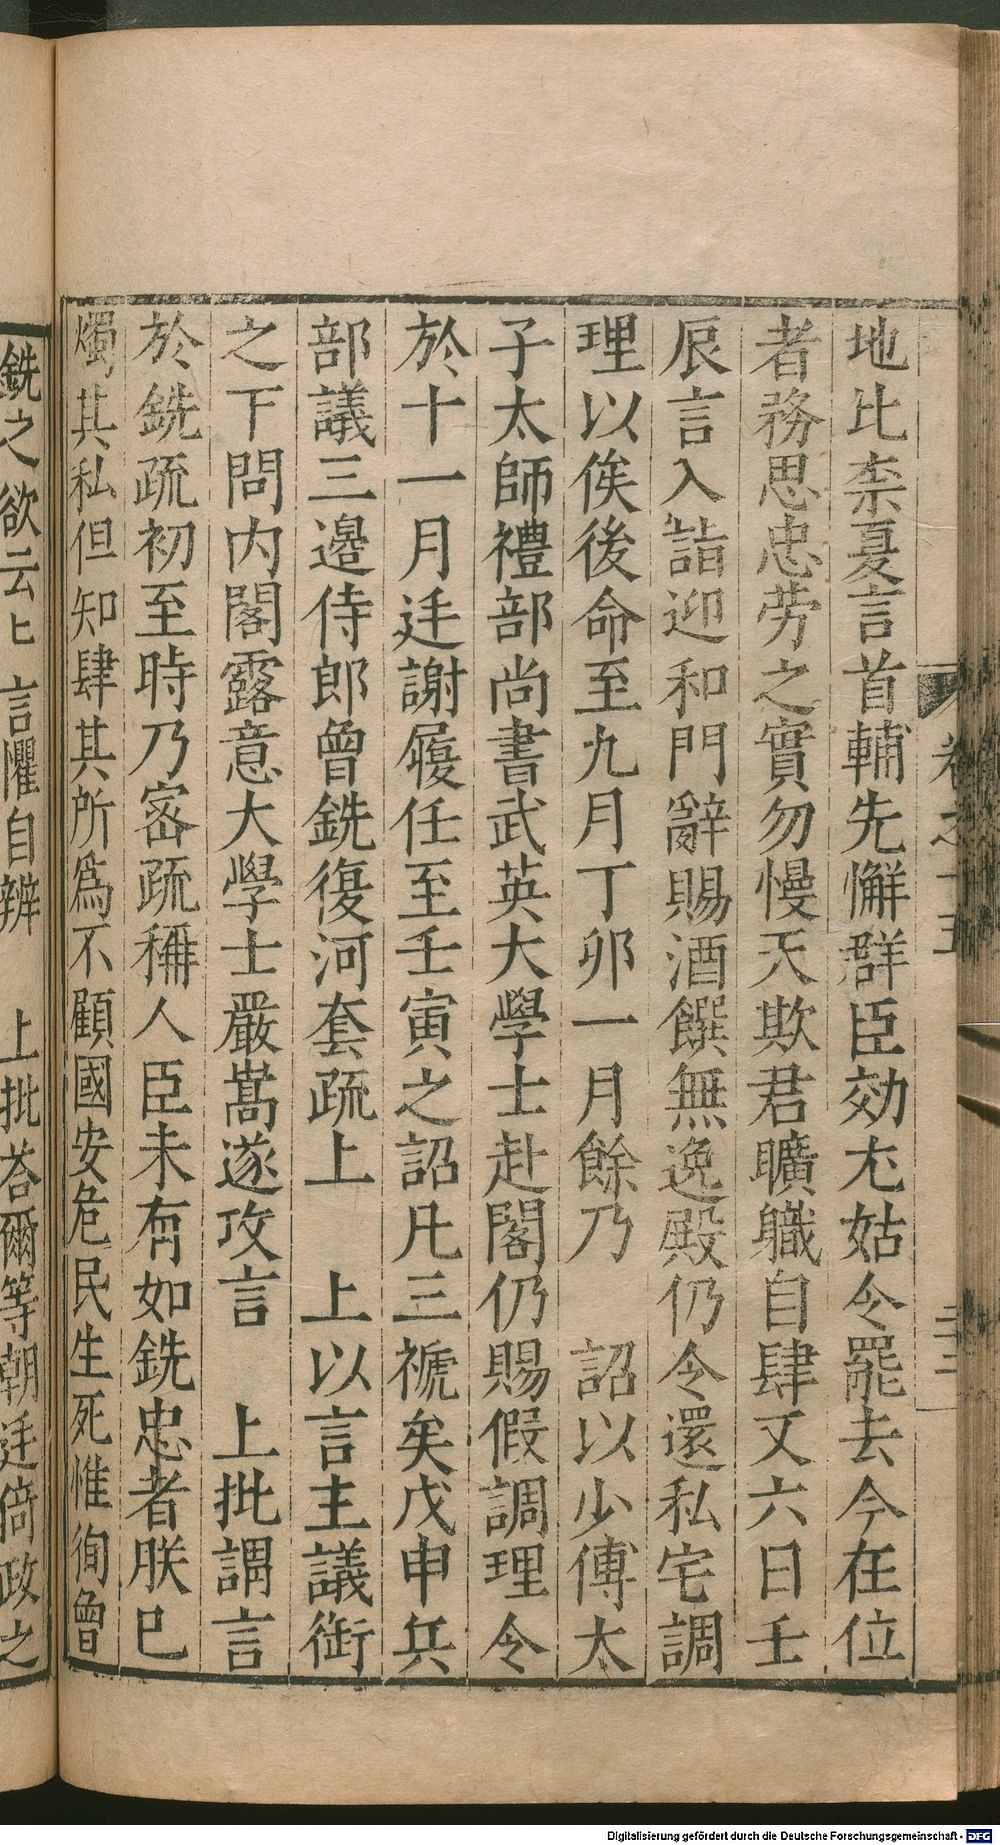 卷之十五
二三
地比柰夏言首輔先懈群臣効尤姑令罷去今在位
者務思忠勞之實勿慢天欺君曠職自肆又六日壬
辰言入詣迎和門辭賜酒饌無逸殿仍令還私宅調
理以俟後命至九月丁卯一月餘乃 詔以少傅太
子太師禮部尚書武英大學士赴閣仍賜假調理令
於十一月廷謝履任至壬寅之詔凡三褫矣戊申兵
部議三邊侍郎曾銑復河套疏上 上以言主議銜
之下問内閣露意大學士嚴嵩遂攻言 上批謂言
於銑疏初至時乃宻疏稱人臣未有如銑忠者朕已
燭其私但知肆其所爲不顧國安危民生死惟徇曾
銑之欲云匕 言懼自辨 上批荅爾等朝廷倚政之
Digitalisierung gefördert durch die Deutsche Forschungsgemeinschaft - DFG